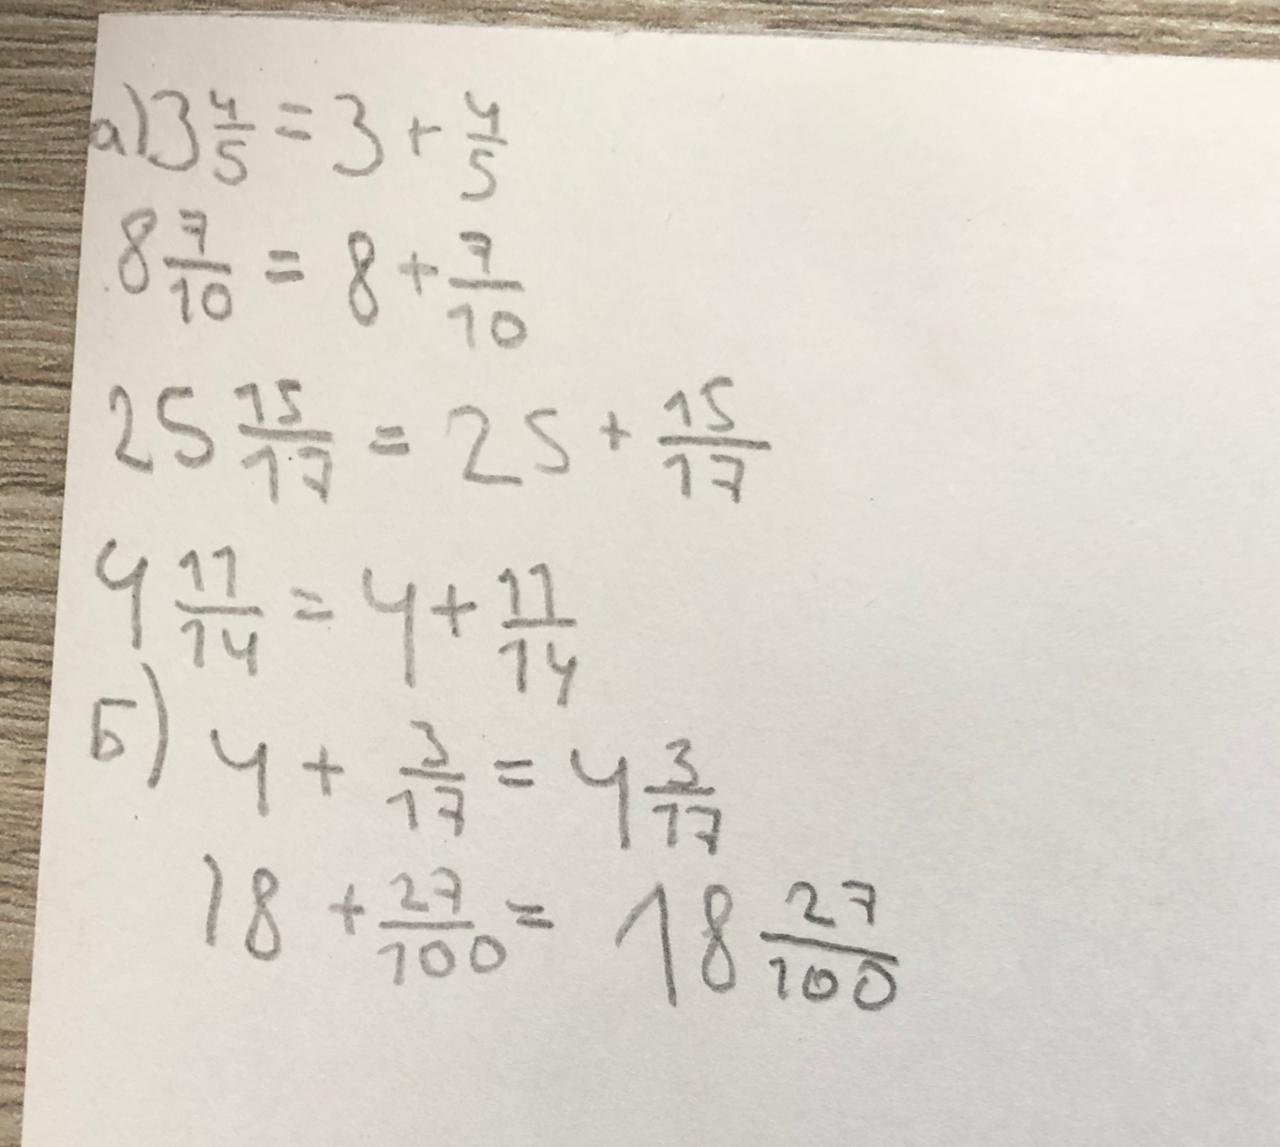 а) 3 4/5 = 3 + 4/5
8 7/10 = 8 + 7/10
25 15/17 = 25 + 15/17
4 11/14 = 4 + 11/14
Б) 4 + 3/17 = 4 3/17
18 + 27/100 = 18 27/100